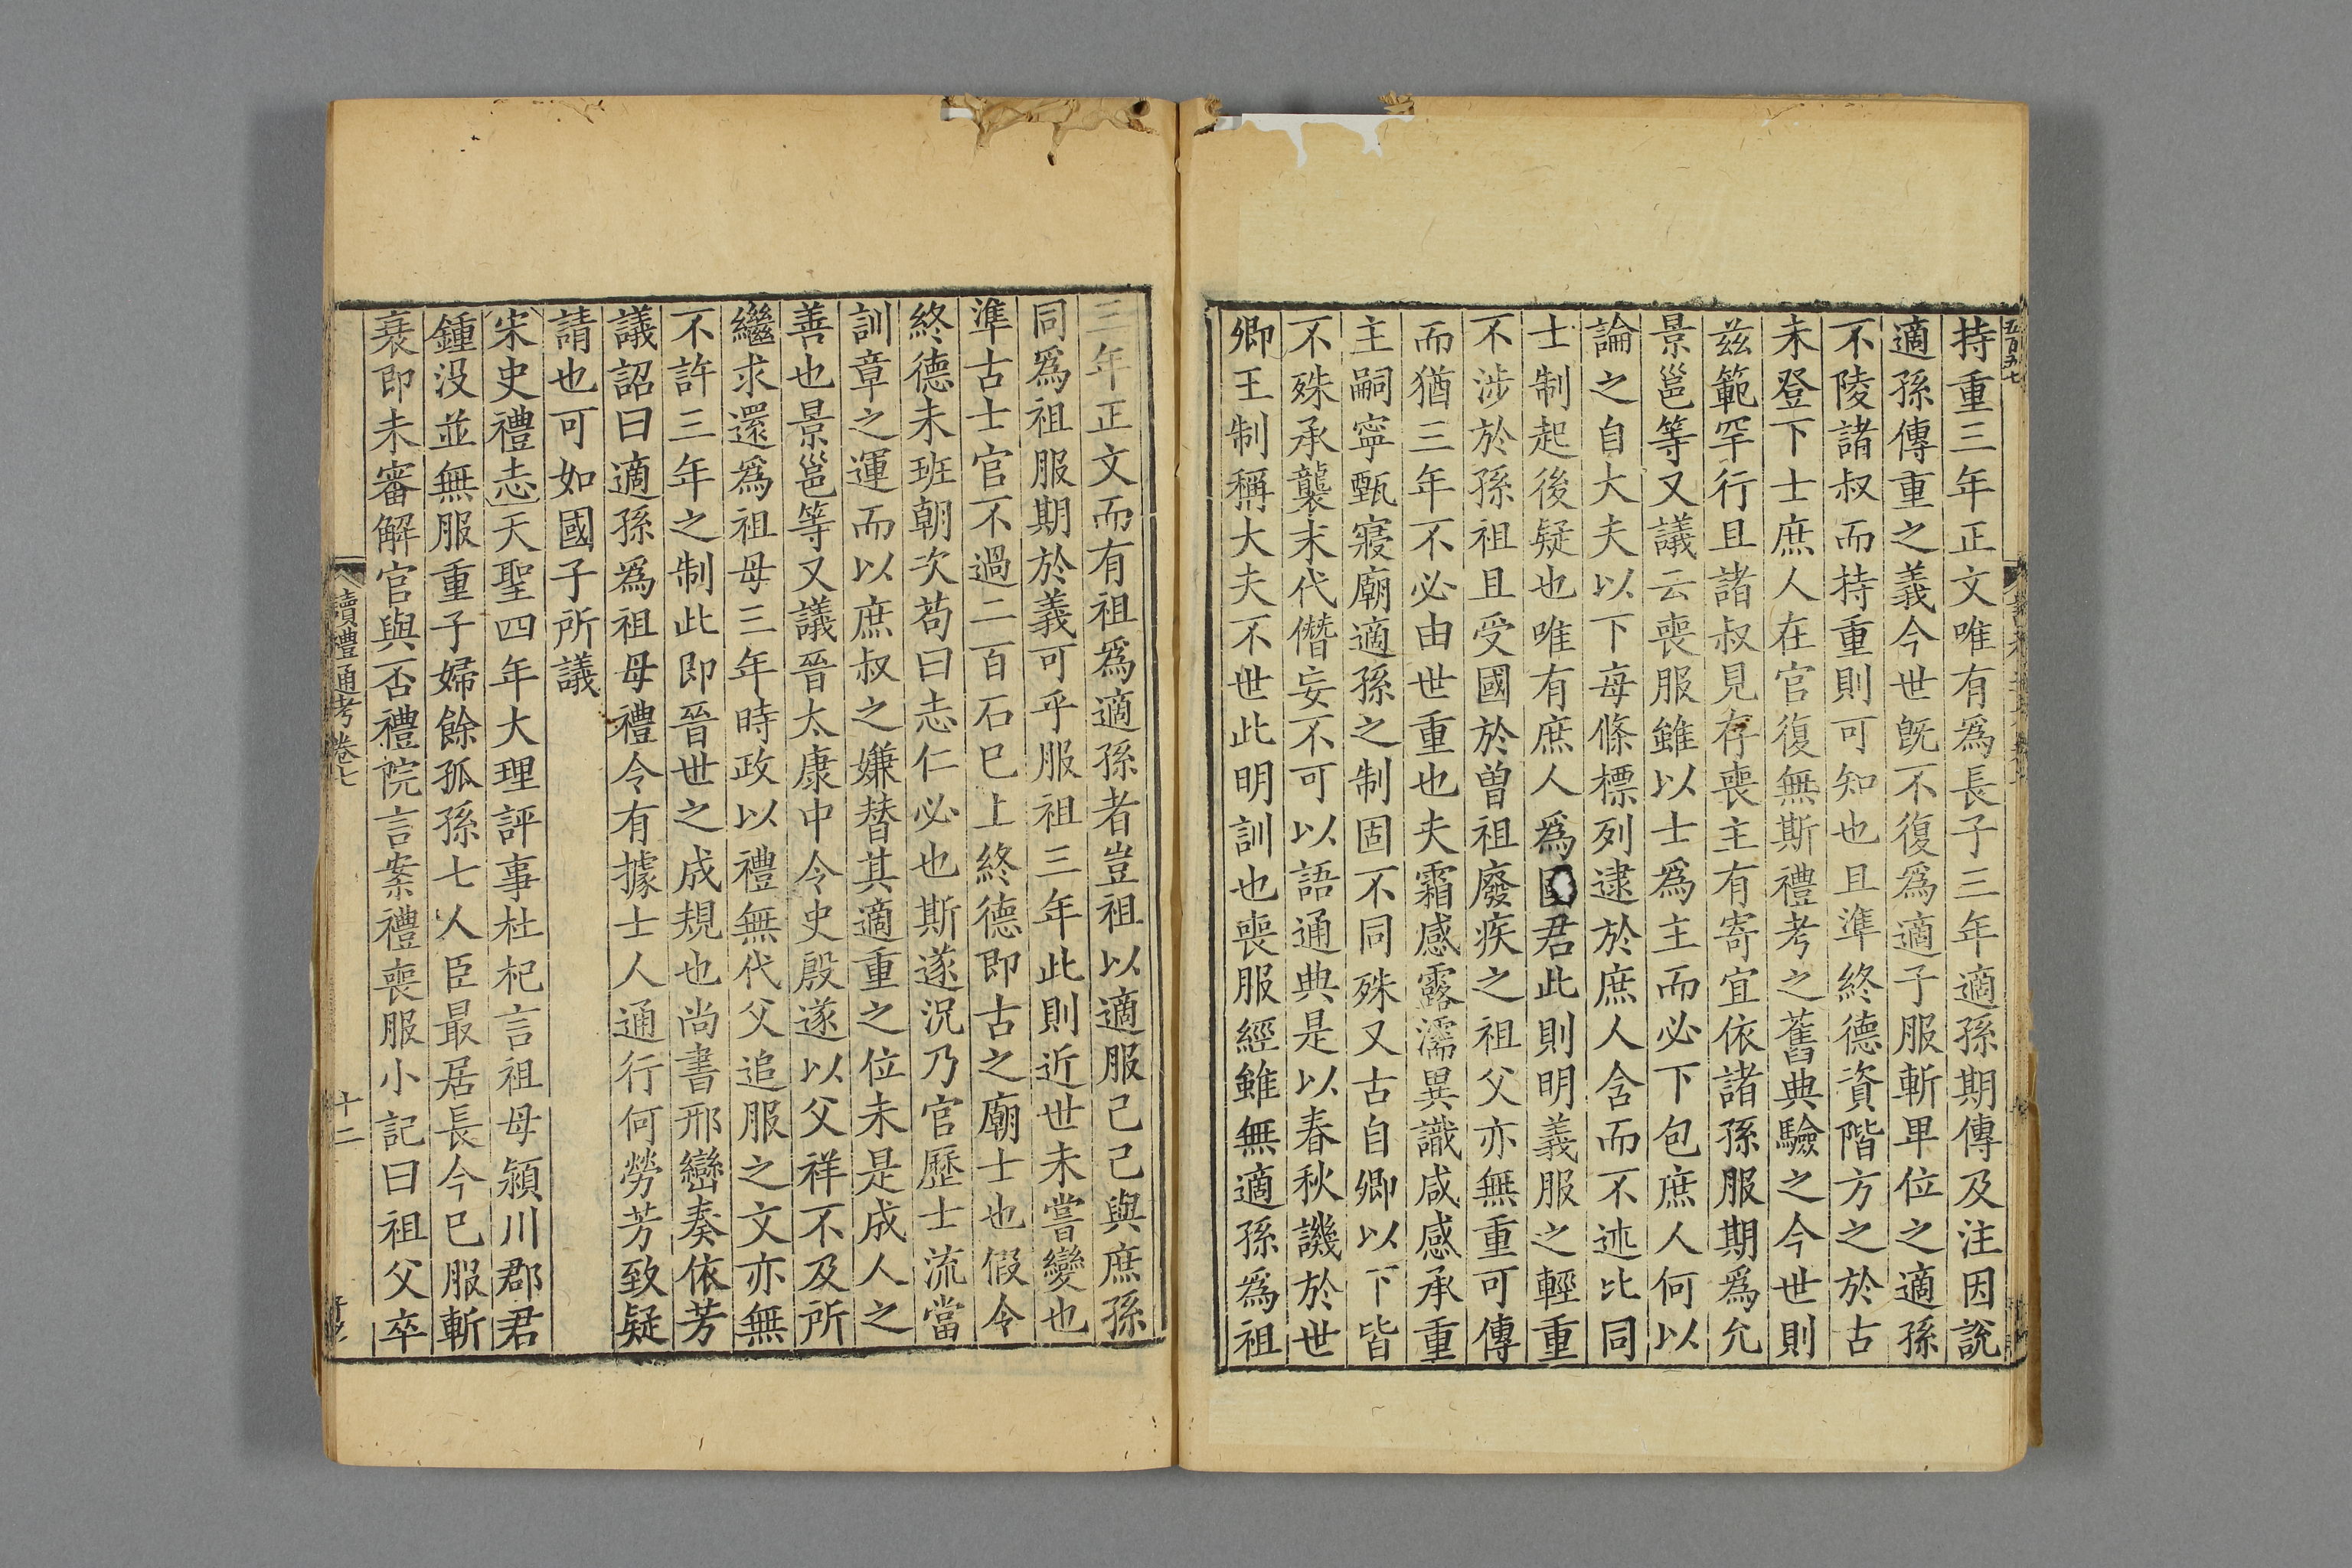 持重三年正文唯有爲長子三年適孫期傳及注因說
適孫傳重之義今世旣不復爲適子服斬卑位之適孫
不陵諸叔而持重則可知也且準終德資階方之於古
未登下士庶人在官復無斯禮考之舊典驗之今世則
玆範罕行且諸叔見存喪主有寄宜依諸孫服期爲允
景邕等又議云喪服雖以士爲主而必下包庶人何以
論之自大夫以下每條標列逮於庶人含而不述比同
士制起後疑也唯有庶人爲國君此則明義服之輕重
不涉於孫祖且受國於曾祖廢疾之祖父亦無重可傳
而猶三年不必由世重也夫霜感露濡異識咸感承重
主嗣寜甄寢廟適孫之制固不同殊又古自卿以下皆
不殊承襲末代僭妄不可以語通典是以春秋譏於世
卿王制稱大夫不世此明訓也喪服經雖無適孫爲祖
三年正文而有祖爲適孫者豈祖以適服己己與庶孫
同爲祖服期於義可乎服祖三年此則近世未嘗變也
準古士官不過二百石巳上終德即古之廟士也假令
終德未班朝次苟曰志仁必也斯遂況乃官歷士流當
訓章之運而以庶叔之嫌替其適重之位未是成人之
善也景邕等又議晉太康中令史殷遂以父祥不及所
繼求還爲祖母三年時政以禮無代父追服之文亦無
不許三年之制此即晉世之成規也尚書邢巒奏依芳
議詔曰適孫爲祖母禮令有據士人通行何勞芳致疑
請也可如國子所議
宋史禮志天聖四年大理評事杜杞言祖母潁川郡君
鍾沒並無服重子婦餘孤孫七人臣最居長今巳服斬
衰即未審解官與否禮院言案禮喪服小記曰祖父卒
讀禮通考卷七
十二